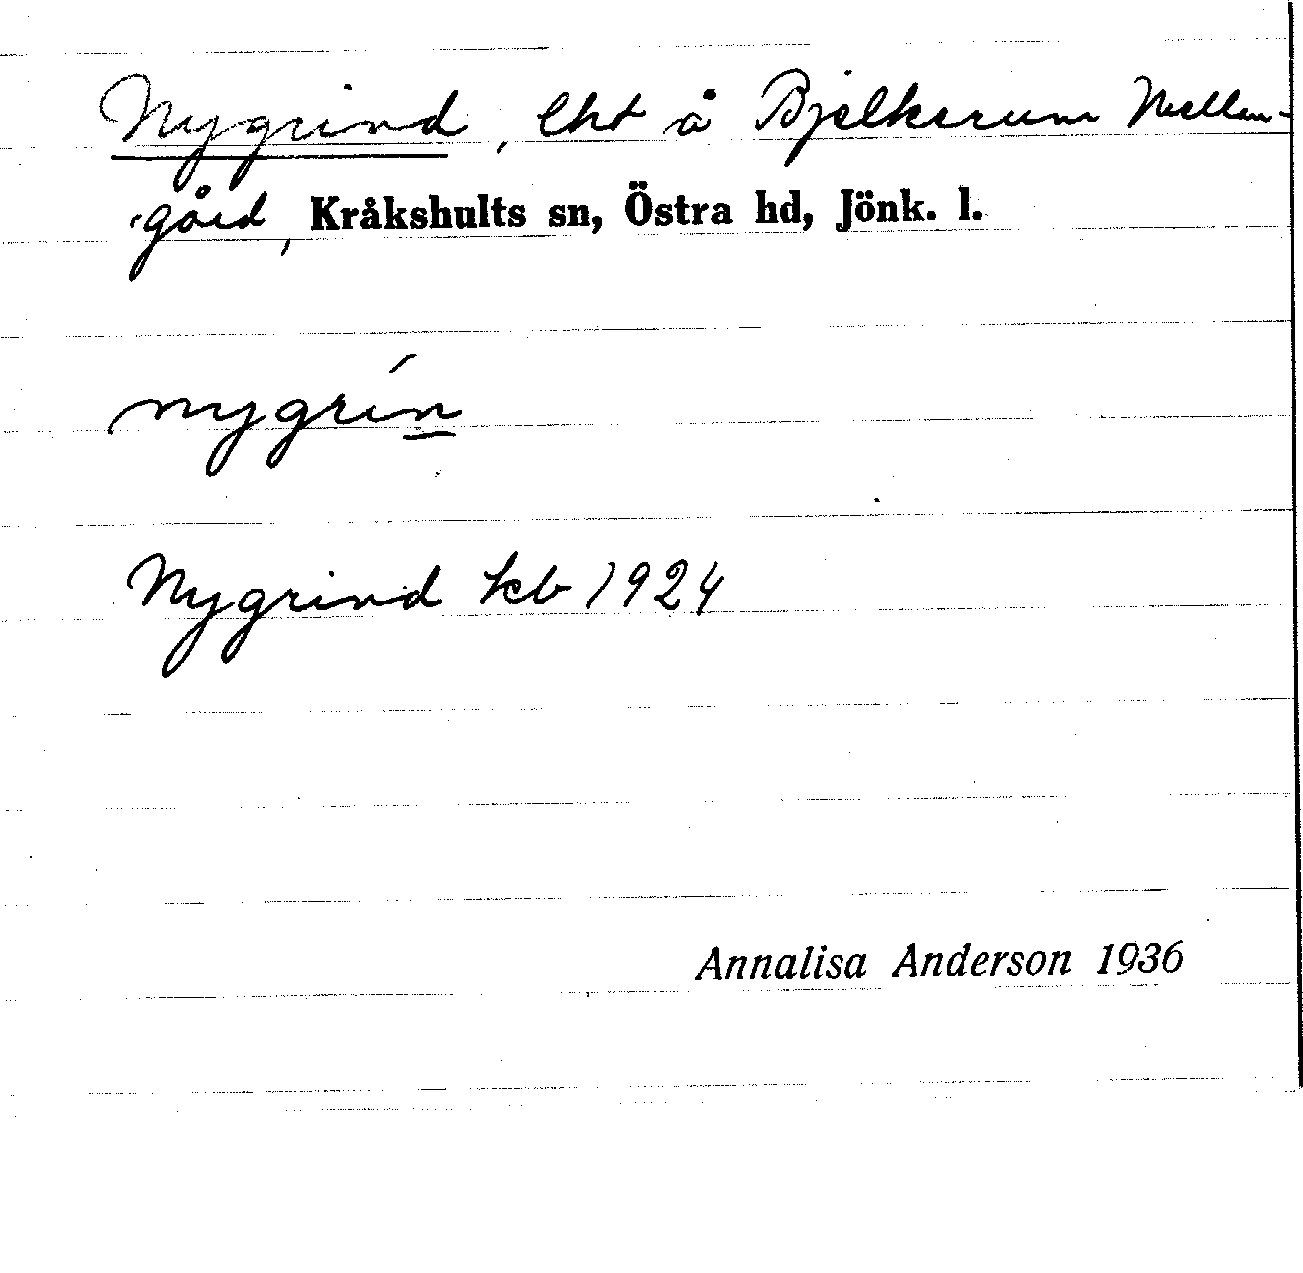 Nygrind, lht å Bjelkerum Mellan-
gård, Kråkshults sn, Östra hd, Jönk. l.
nygrín
Nygrind kb 1924
Annalisa Anderson 1936